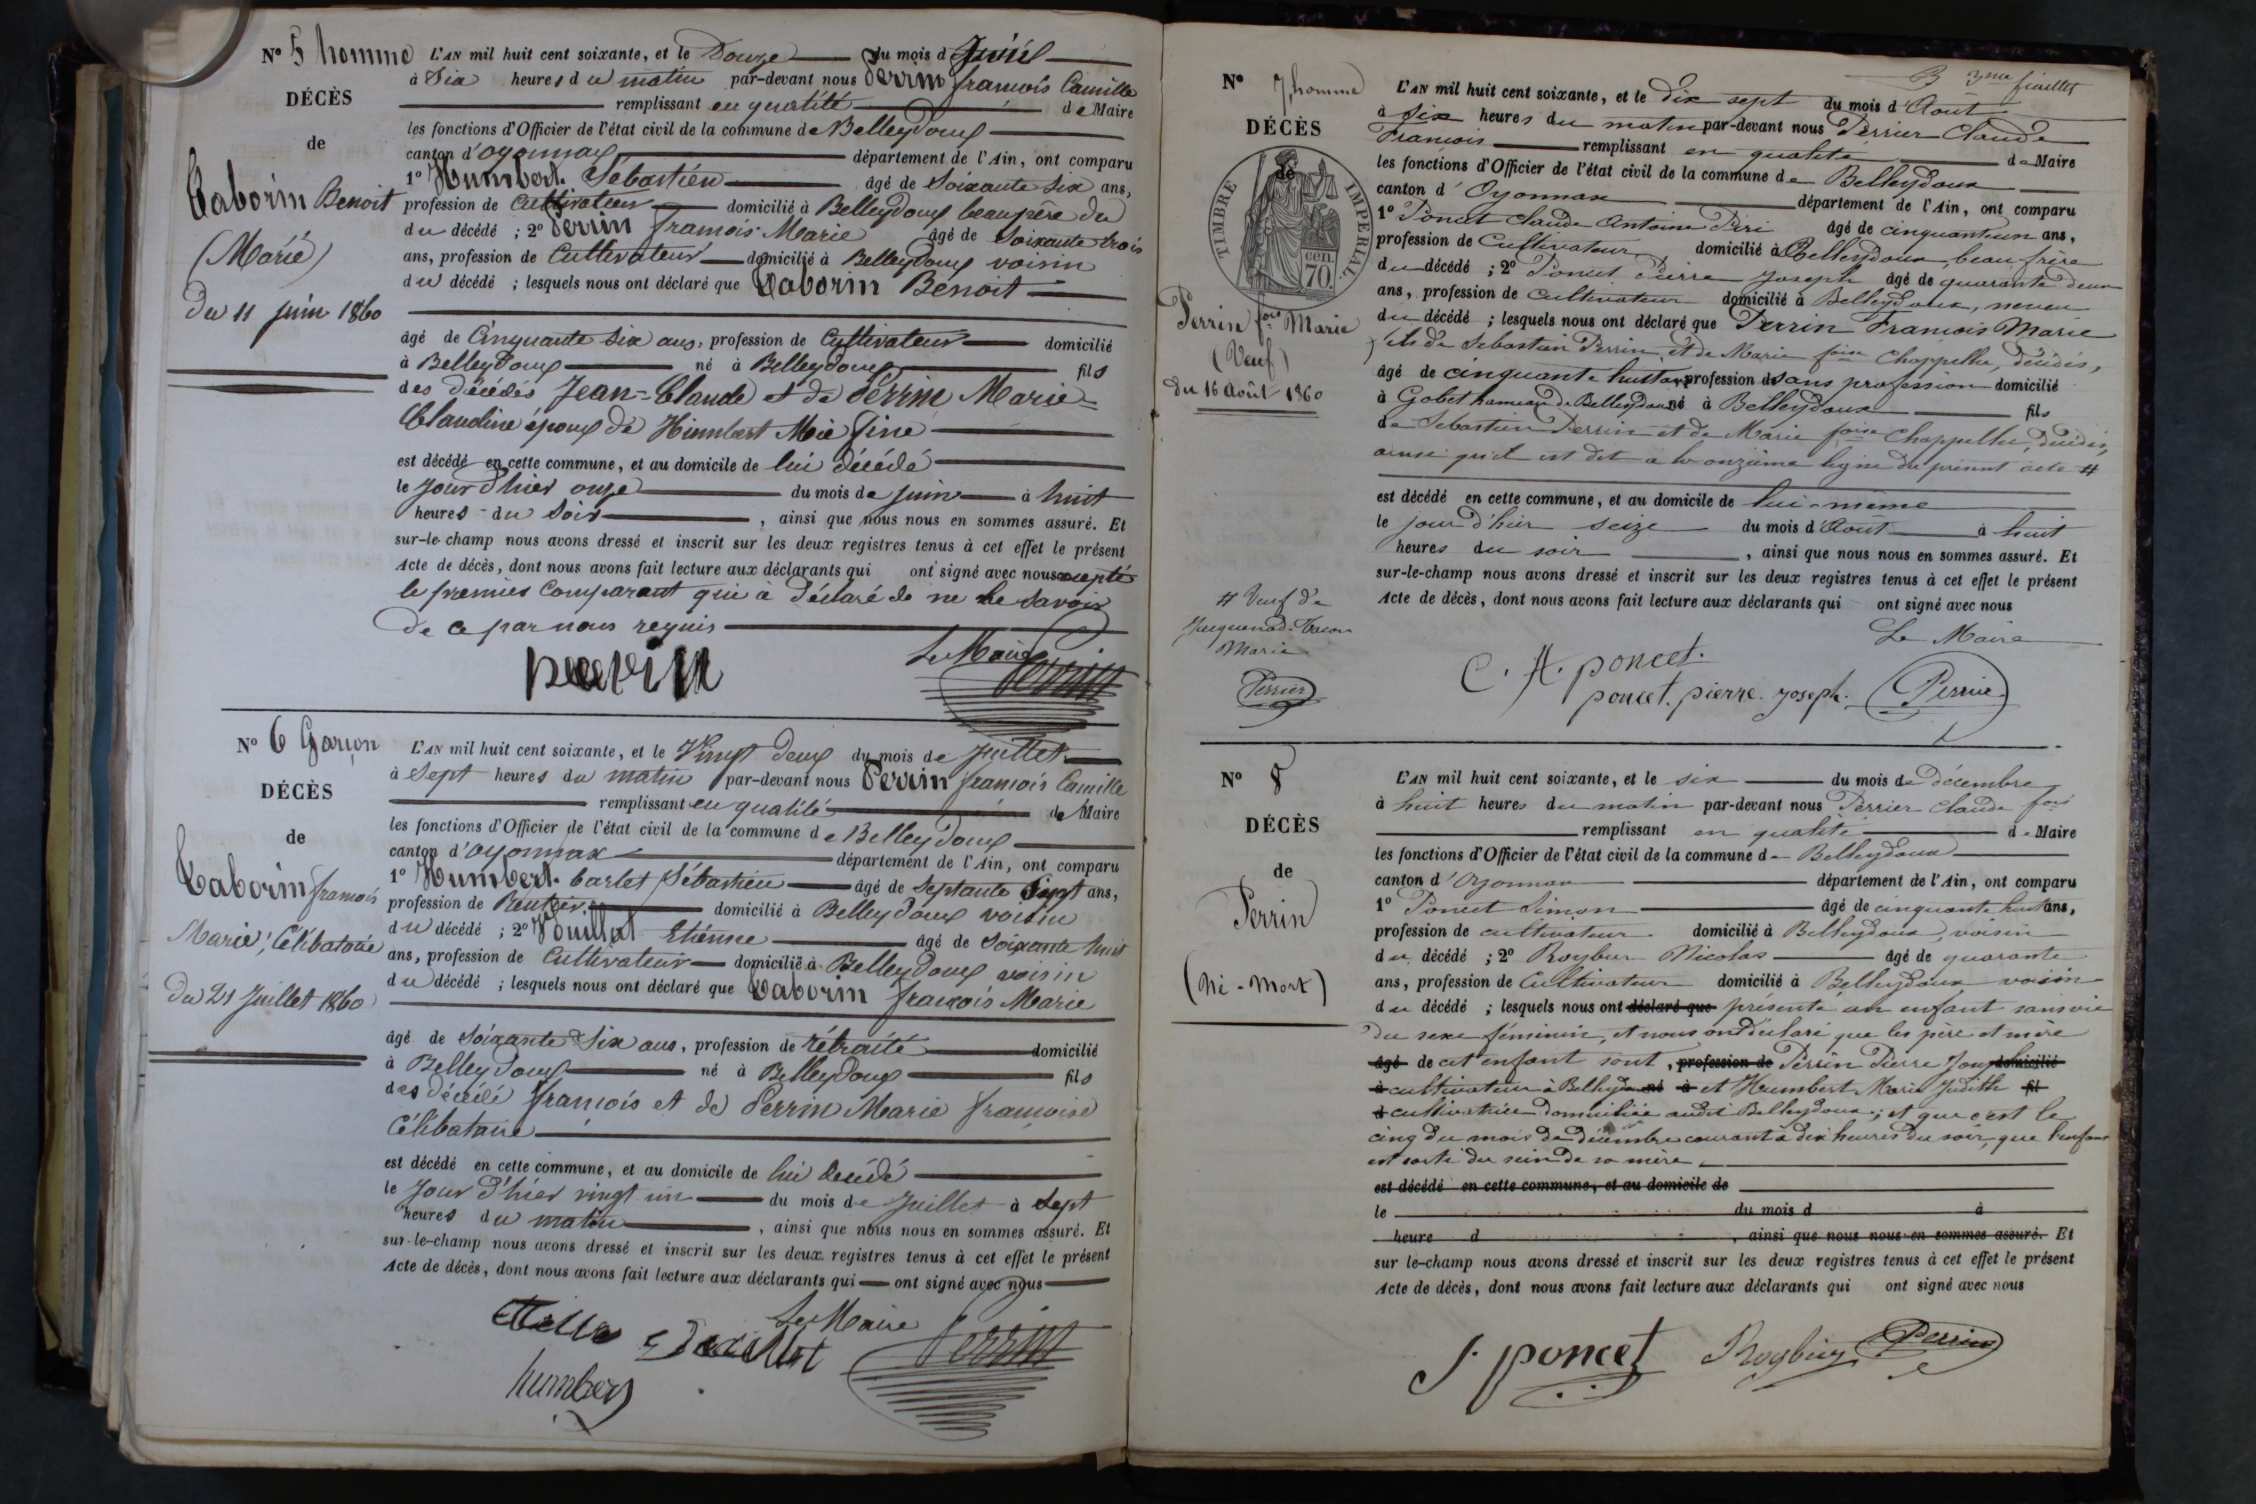 N° 5 homme
DÉCÈS
de
Taborin Benoit
(Marié)
Du 11 juin 1860
L'AN mil huit cent soixante, et le Douze du mois d Juin
à Six heures du matin par-devant nous Perrin françois Camille
remplissant en qualité de Maire
les fonctions d'Officier de l'état civil de la commune de Belleydoux
canton d'Oyonnax département de l'Ain, ont comparu
1° Humbert Sébastien âgé de Soixante six ans,
profession de Cultivateur domicilié à Belleydoux beau père du
du décédé ; 2° Perrin françois Marie âgé de Soixante trois
ans, profession de Cultivateur domicilié à Belleydoux voisin
du décédé ; lesquels nous ont déclaré que Taborin Benoit
âgé de Cinquante six ans, profession de Cultivateur domicilié
à Belleydoux né à Belleydoux fils
des décédés Jean-Claude et de Perrin Marie
Claudine époux de Humbert Mie fine
est décédé en cette commune, et au domicile de lui décédé
le jour d'hier onze du mois de juin à huit
heures du Soir , ainsi que nous nous en sommes assuré. Et
sur-le-champ nous avons dressé et inscrit sur les deux registres tenus à cet effet le présent
Acte de décès, dont nous avons fait lecture aux déclarants qui ont signé avec nous excepté
le premier Comparant qui à déclaré de ne le savoir
de ce par nous requis
Le Maire
perrin Perrin
N° 6 Garçon
DÉCÈS
de
Taborin françois
Marie, Célibataire
Du 21 Juillet 1860
L'AN mil huit cent soixante, et le Vingt deux du mois de Juillet
à Sept heures du matin par-devant nous Perrin françois Camille
remplissant en qualité de Maire
les fonctions d'Officier de l'état civil de la commune de Belleydoux
canton d'Oyonnax département de l'Ain, ont comparu
1° Humbert Carlet Sébastien âgé de Septante Sept ans,
profession de Rentier domicilié à Belleydoux voisin
du décédé ; 2° Vouillat Etienne âgé de Soixante huit
ans, profession de Cultivateur domicilié à Belleydoux voisin
du décédé ; lesquels nous ont déclaré que Taborin françois Marie
âgé de Soixante Six ans, profession de rétraité domicilié
à Belleydoux né à Belleydoux fils
des décédé françois et de Perrin Marie françoise
Célibataire
est décédé en cette commune, et au domicile de lui décédé
le Jour d'hier vingt un du mois de Juillet à Sept
heures du matin , ainsi que nous nous en sommes assuré. Et
sur-le-champ nous avons dressé et inscrit sur les deux registres tenus à cet effet le présent
Acte de décès, dont nous avons fait lecture aux déclarants qui ont signé avec nous
Le Maire
Perrin
humbert
3me feuillet
N° 7 homme
DÉCÈS
de
TIMBRE IMPERIAL
70 cen.
Perrin fois Marie
(Veuf)
du 16 Août 1860
L'AN mil huit cent soixante, et le dix sept du mois d'Août
à six heures du matin par-devant nous Perrier Claude
François remplissant en qualité de Maire
les fonctions d'Officier de l'état civil de la commune de Belleydoux
canton d'Oyonnax département de l'Ain, ont comparu
1° Poncet Claude Antoine âgé de cinquante un ans,
profession de Cultivateur domicilié à Belleydoux, beau frère
du décédé ; 2° Poncet Pierre Joseph âgé de quarante deux
ans, profession de cultivateur domicilié à Belleydoux, neveu
du décédé ; lesquels nous ont déclaré que Perrin François Marie
fils de Sebastien Perrin, et de Marie foise Chappellu, décédés,
âgé de cinquante huit ans profession de sans profession domicilié
à Gobet hameau de Belleydoux né à Belleydoux fils
de Sebastien Perrin et de Marie foise Chappellu, décédés,
ainsi qu'il est dit à la onzième ligne du présent acte #
est décédé en cette commune, et au domicile de lui-même
le jour d'hier seize du mois d'Août à huit
heures du soir , ainsi que nous nous en sommes assuré. Et
sur-le-champ nous avons dressé et inscrit sur les deux registres tenus à cet effet le présent
Acte de décès, dont nous avons fait lecture aux déclarants qui ont signé avec nous
# Veuf de
Marie
Perrier
Le Maire
C. A. poncet.
poncet. pierre. joseph. Perrier
N° 8
DÉCÈS
de
Perrin
(Né-Mort)
L'AN mil huit cent soixante, et le six du mois de décembre
à huit heures du matin par-devant nous Perrier Claude fois
remplissant en qualité de Maire
les fonctions d'Officier de l'état civil de la commune de Belleydoux
canton d'Oyonnax département de l'Ain, ont comparu
1° Poncet Simon âgé de cinquante huit ans,
profession de cultivateur domicilié à Belleydoux, voisin
du décédé ; 2° Roybur Nicolas âgé de quarante
ans, profession de Cultivateur domicilié à Belleydoux voisin
du décédé ; lesquels nous ont déclaré que présenté un enfant sans vie
du sexe féminin, et nous ont déclaré que les père et mère
âgé de cet enfant sont, profession de Perrin Pierre Joseph domicilié
à cultivateur à Belleydoux né à et Humbert Marie Judith fil
d cultivatrice domiciliée audit Belleydoux ; et que c'est le
cinq du mois de décembre courant à dix heures du soir, que l'enfant
est sorti du sein de sa mère
est décédé en cette commune, et au domicile de
le du mois d à
heure d , ainsi que nous nous en sommes assuré. Et
sur le-champ nous avons dressé et inscrit sur les deux registres tenus à cet effet le présent
Acte de décès, dont nous avons fait lecture aux déclarants qui ont signé avec nous
S. poncet Roybier Perrier